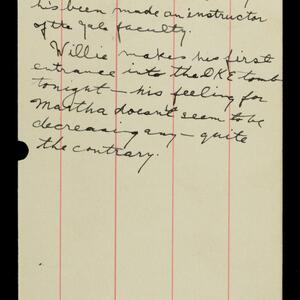 his been made an instructor
of the Yale faculty.
Willie makes his first
entrance into the DKE tomb
tonight — his feeling for
Martha doesn't seem to be
decreasing any — quite
the contrary.